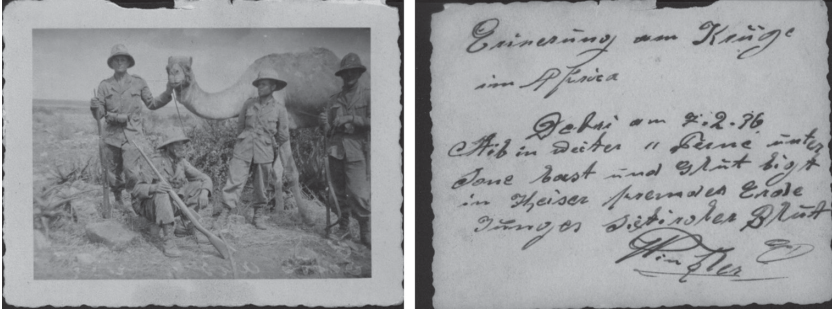 Erinerung am Krüge
im Africa
Dabri am 7.2.36
Hib in weiter "Ferne unter
Sone Last und Glut ligt
in Heiser fremder Erde
Junges Sütiroler Blut
Winkler